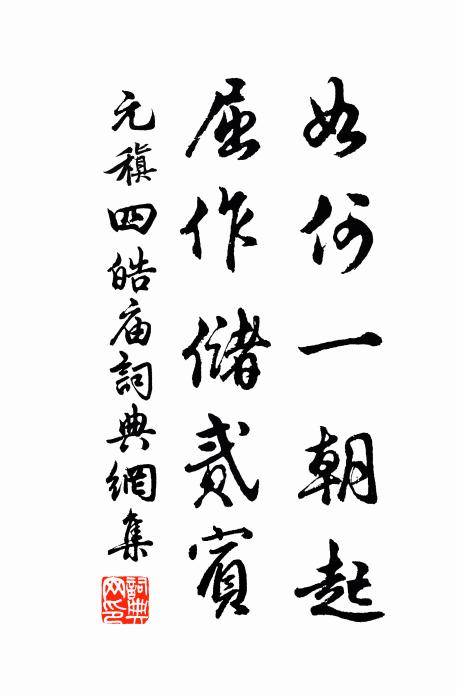 如何一朝起
屈作儲貳賓
元稹四皓庙詞典網集
詞典網印